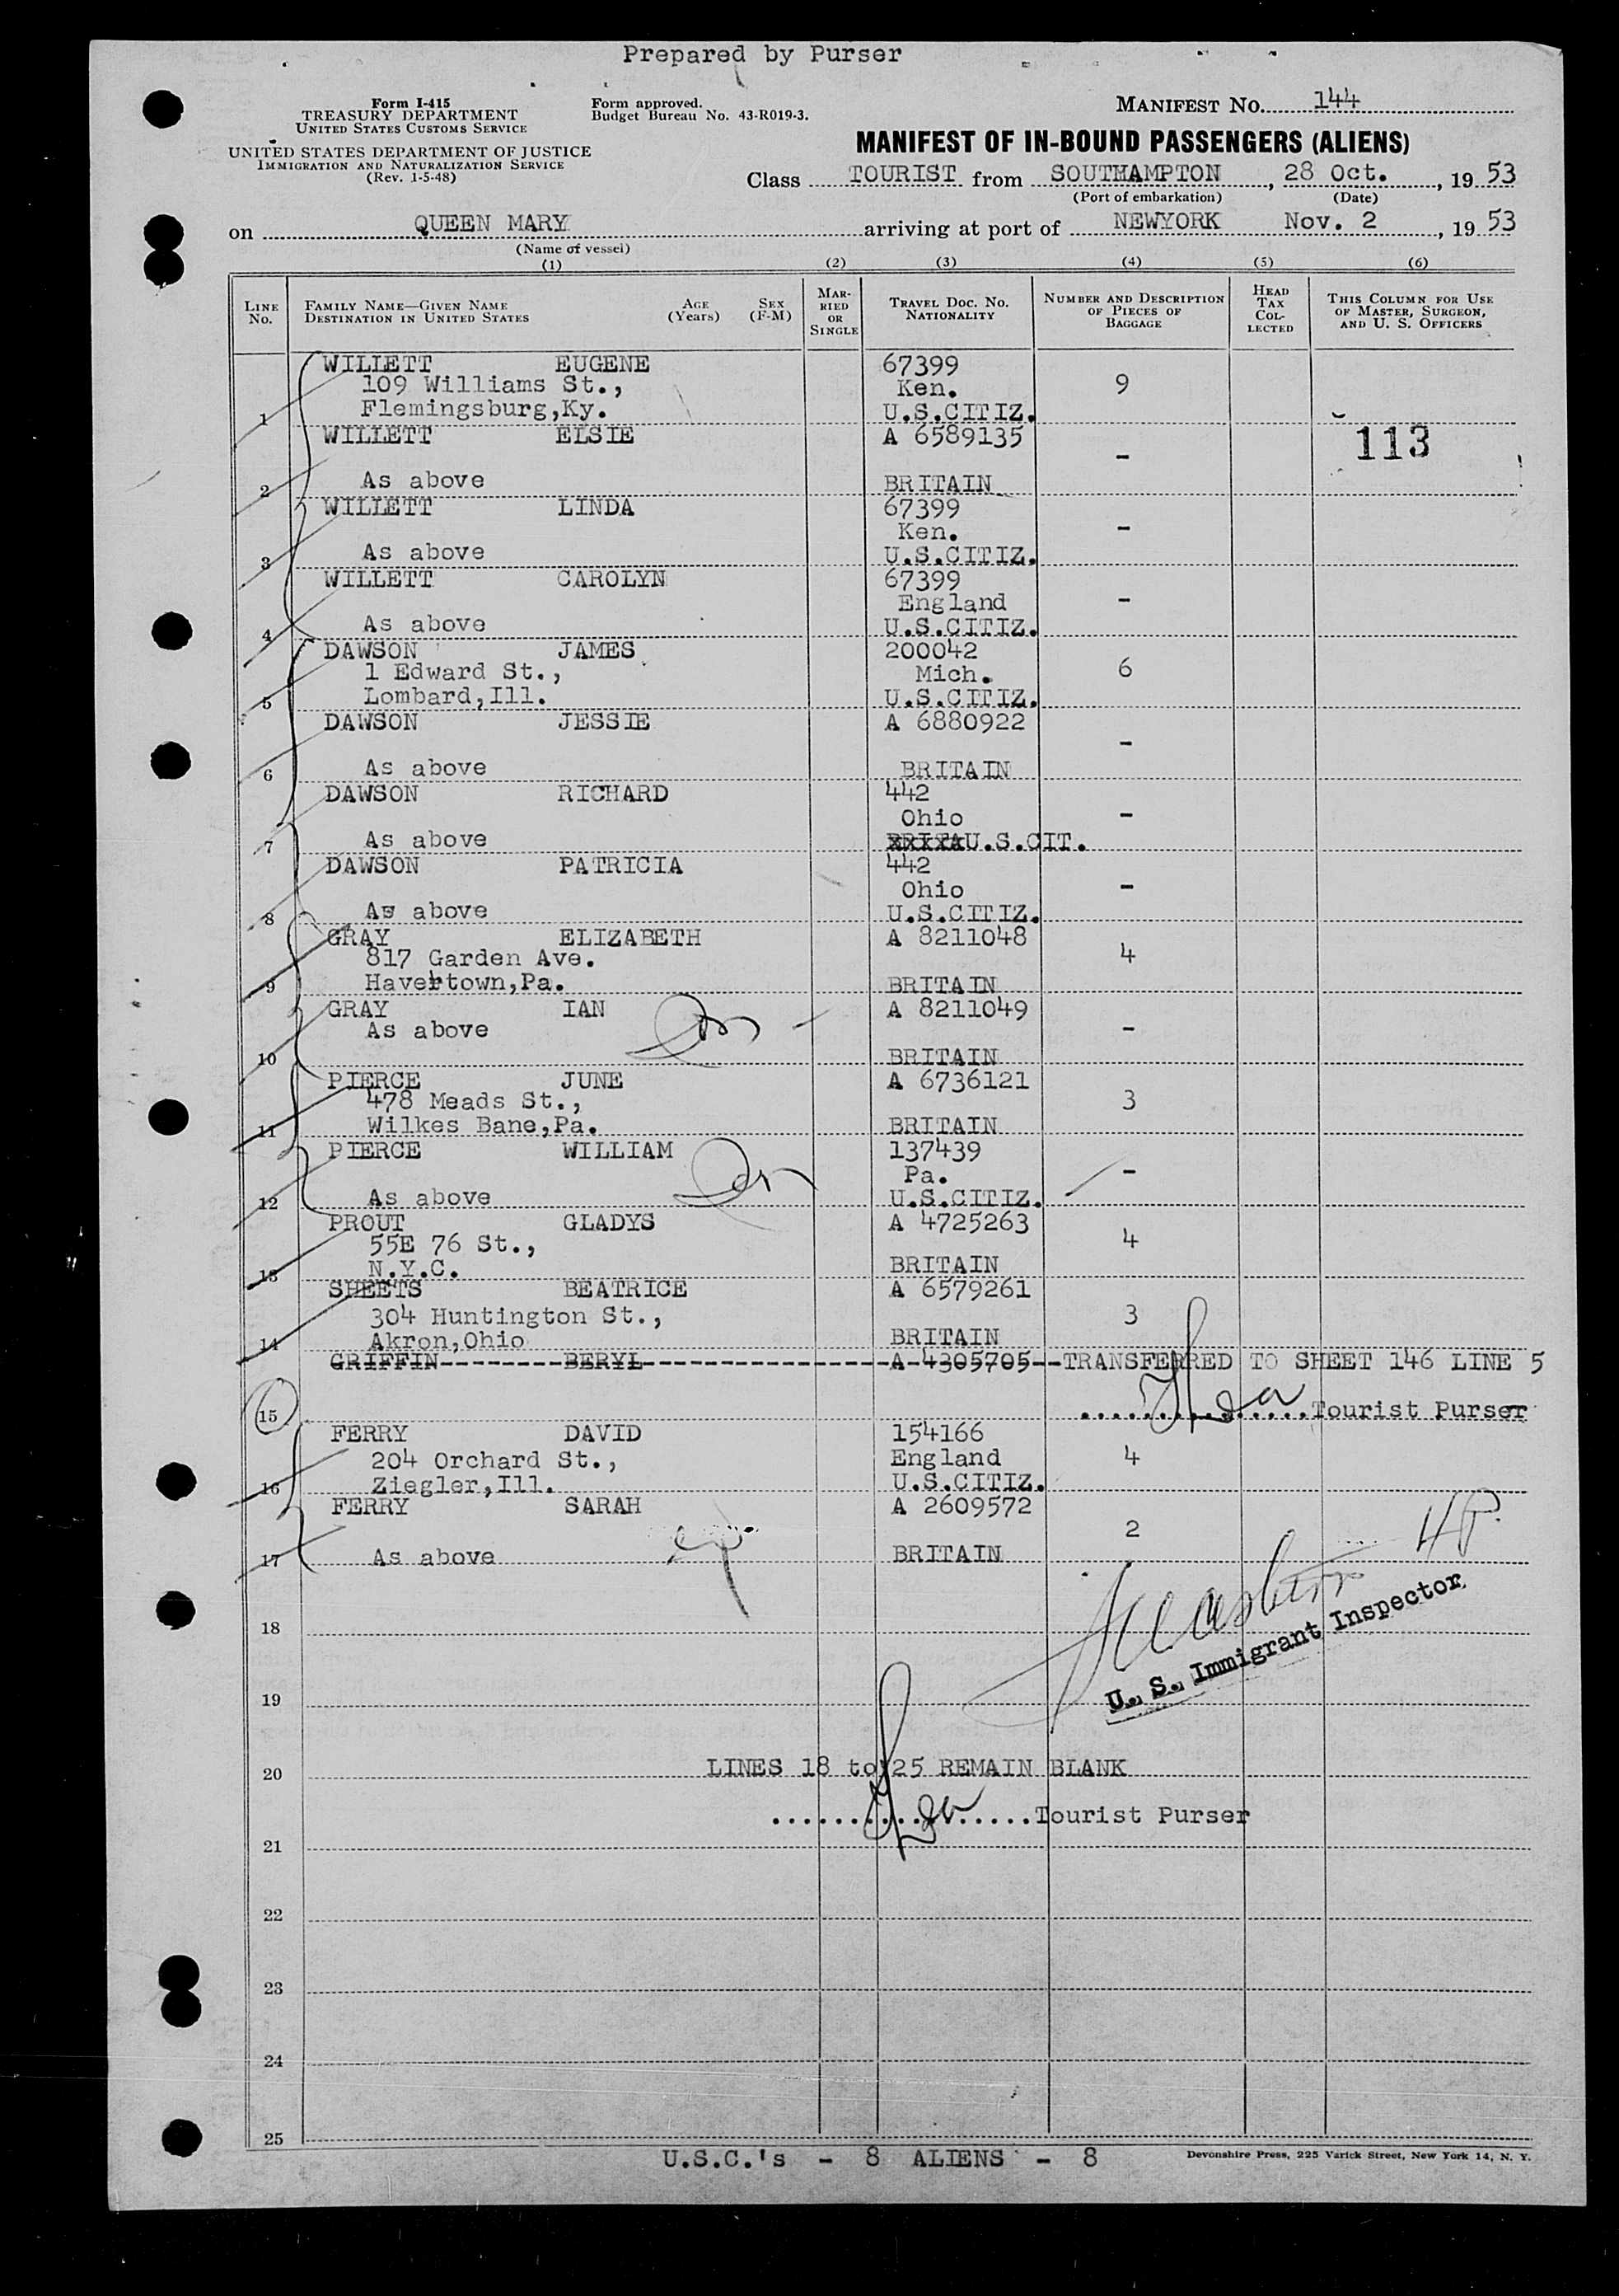 Prepared by Purser
Form I-415
TREASURY DEPARTMENT
UNITED STATES CUSTOMS SERVICE
UNITED STATES DEPARTMENT OF JUSTICE
IMMIGRATION AND NATURALIZATION SERVICE
(Rev. 1-5-48)
Form approved.
Budget Bureau No. 43-R019-3.
MANIFEST NO. 144
MANIFEST OF IN-BOUND PASSENGERS (ALIENS)
Class TOURIST from SOUTHAMPTON, 28 Oct., 19 53
(Port of embarkation) (Date)
on QUEEN MARY arriving at port of NEWYORK Nov. 2, 19 53
(Name of vessel)
(1) (2) (3) (4) (5) (6)
LINE No. FAMILY NAME—GIVEN NAME DESTINATION IN UNITED STATES AGE (Years) SEX (F-M) MARRIED OR SINGLE TRAVEL DOC. NO. NATIONALITY NUMBER AND DESCRIPTION OF PIECES OF BAGGAGE HEAD TAX COLLECTED THIS COLUMN FOR USE OF MASTER, SURGEON, AND U. S. OFFICERS
WILLETT EUGENE 67399
109 Williams St., Ken. 9
1 Flemingsburg,Ky. U.S.CITIZ.
WILLETT ELSIE A 6589135 113
-
2 As above BRITAIN
WILLETT LINDA 67399
Ken. -
3 As above U.S.CITIZ.
WILLETT CAROLYN 67399
England -
4 As above U.S.CITIZ.
DAWSON JAMES 200042
1 Edward St., Mich. 6
5 Lombard,Ill. U.S.CITIZ.
DAWSON JESSIE A 6880922
-
6 As above BRITAIN
DAWSON RICHARD 442
Ohio -
7 As above BRITA U.S.CIT.
DAWSON PATRICIA 442
Ohio -
8 As above U.S.CITIZ.
GRAY ELIZABETH A 8211048
817 Garden Ave. 4
9 Havertown,Pa. BRITAIN
GRAY IAN A 8211049
As above -
10 BRITAIN
PIERCE JUNE A 6736121
478 Meads St., 3
11 Wilkes Bane,Pa. BRITAIN
PIERCE WILLIAM 137439
Pa. -
12 As above U.S.CITIZ.
PROUT GLADYS A 4725263
55E 76 St., 4
13 N.Y.C. BRITAIN
SHEETS BEATRICE A 6579261
304 Huntington St., 3
14 Akron,Ohio BRITAIN
GRIFFIN BERYL A 4305705 TRANSFERRED TO SHEET 146 LINE 5
15 Tourist Purser
FERRY DAVID 154166
204 Orchard St., England 4
16 Ziegler,Ill. U.S.CITIZ.
FERRY SARAH A 2609572
2
17 As above BRITAIN
18
U. S. Immigrant Inspector
19
20 LINES 18 to 25 REMAIN BLANK
Tourist Purser
21
22
23
24
25
U.S.C.'s - 8 ALIENS - 8
Devonshire Press, 225 Varick Street, New York 14, N. Y.